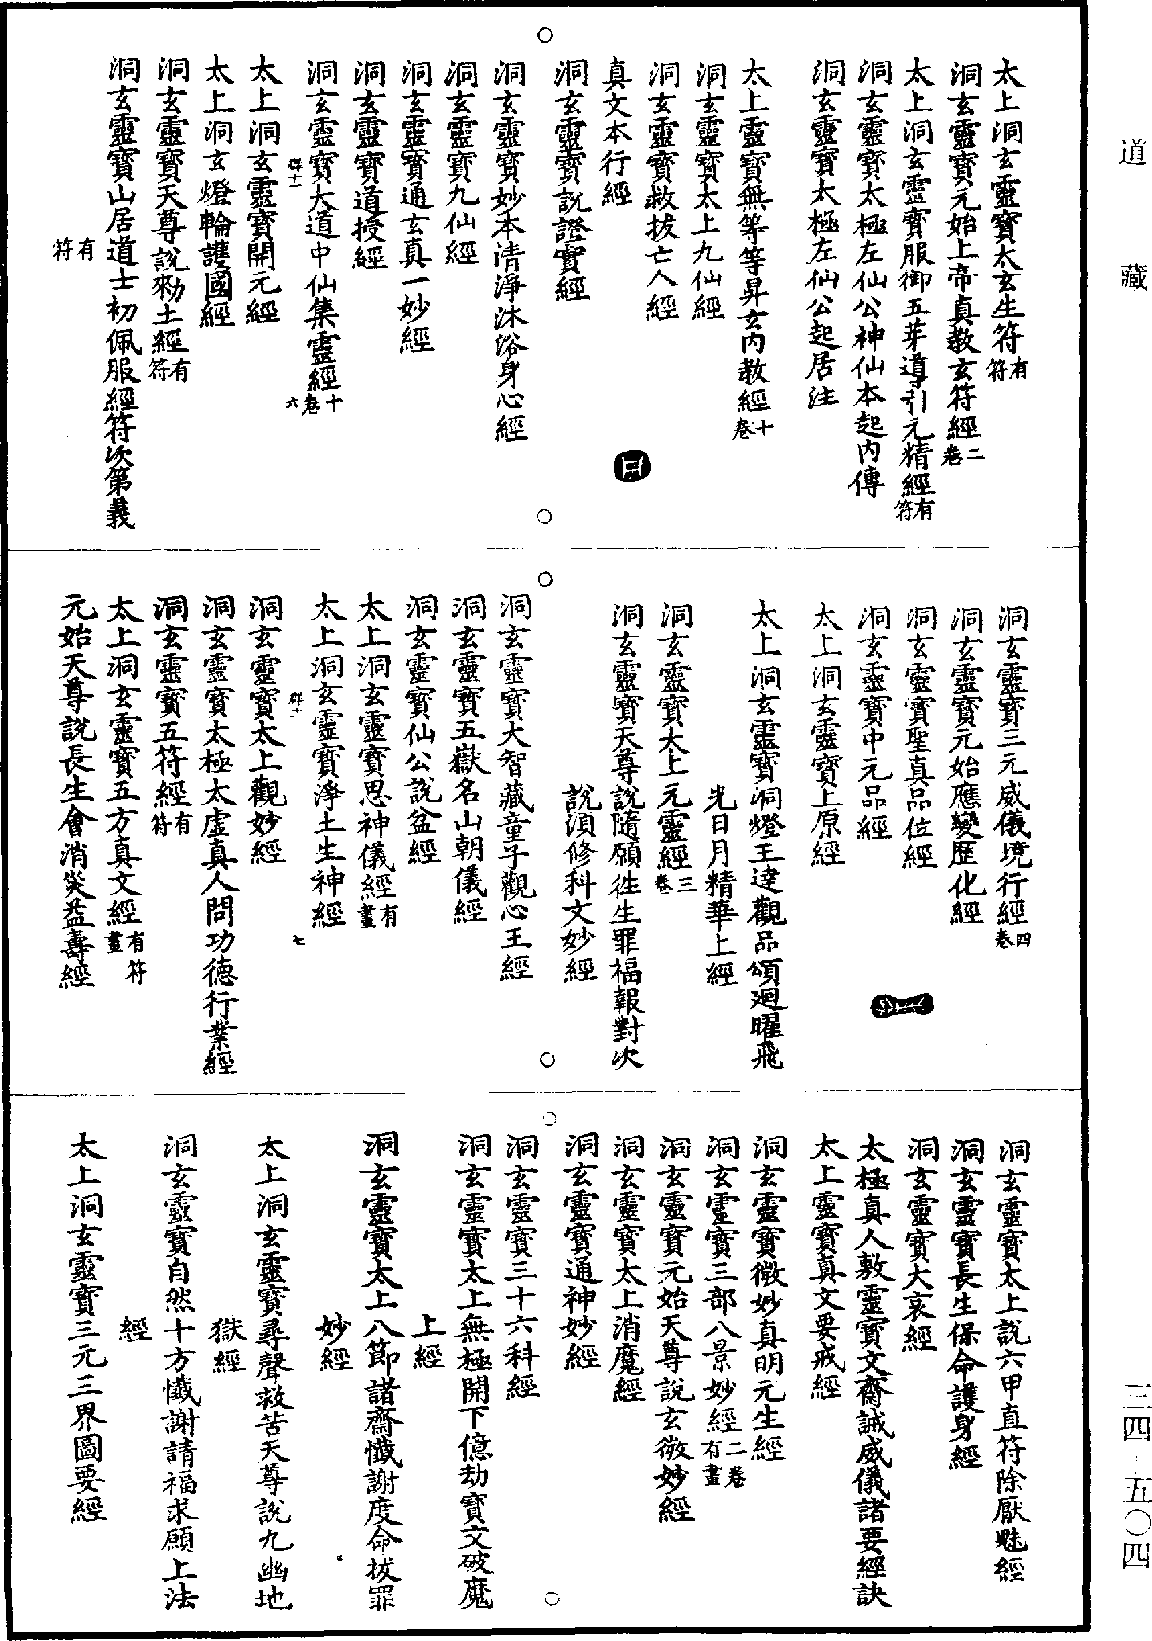 道藏
太上洞玄靈寶太玄生符有符
洞玄靈寶元始上帝真教玄符經二卷
太上洞玄靈寶服御五芽導引元精經有符
洞玄靈寶太極左仙公神仙本起內傳
洞玄靈寶太極左仙公起居注
太上靈寶無等等昇玄內教經十卷
洞玄靈寶太上九仙經
洞玄靈寶救拔亡人經
真文本行經
洞玄靈寶說證實經
洞玄靈寶妙本清淨沐浴身心經
洞玄靈寶九仙經
洞玄靈寶通玄真一妙經
洞玄靈寶道授經
洞玄靈寶大道中仙集靈經十卷
六
太上洞玄靈寶開元經
太上洞玄燈輪護國經
洞玄靈寶天尊說勑土經有符
洞玄靈寶山居道士初佩服經符次第義
有符
洞玄靈寶三元威儀境行經四卷
洞玄靈寶元始應變歷化經
洞玄靈寶聖真品位經
洞玄靈寶中元品經
太上洞玄靈寶上原經
太上洞玄靈寶洞燈王逮觀品頌廻曜飛
光日月精華上經
洞玄靈寶太上元靈經三卷
洞玄靈寶天尊說隨願往生罪福報對次
說湏修科文妙經
洞玄靈寶大智藏童子觀心王經
洞玄靈寶五嶽名山朝儀經
洞玄靈寶仙公說盆經
太上洞玄靈寶思神儀經有畫
太上洞玄靈寶淨土生神經
七
洞玄靈寶太上觀妙經
洞玄靈寶太極太虛真人問功德行業經
洞玄靈寶五符經有符
太上洞玄靈寶五方真文經有符畫
元始天尊說長生會消災益壽經
洞玄靈寶太上說六甲直符除厭魅經
洞玄靈寶長生保命護身經
洞玄靈寶大哀經
太極真人敷靈寶文齋誡威儀諸要經訣
太上靈寶真文要戒經
洞玄靈寶微妙真明元生經
洞玄靈寶三部八景妙經二卷有畫
洞玄靈寶元始天尊說玄微妙經
洞玄靈寶太上消魔經
洞玄靈寶通神妙經
洞玄靈寶三十六科經
洞玄靈寶太上無極開下億劫寶文破魔
上經
洞玄靈寶太上八節諸齋懺謝度命拔罪
妙經
太上洞玄靈寶尋聲救苦天尊說九幽地
獄經
洞玄靈寶自然十方懺謝請福求願上法
經
太上洞玄靈寶三元三界圖要經
三四·五〇四